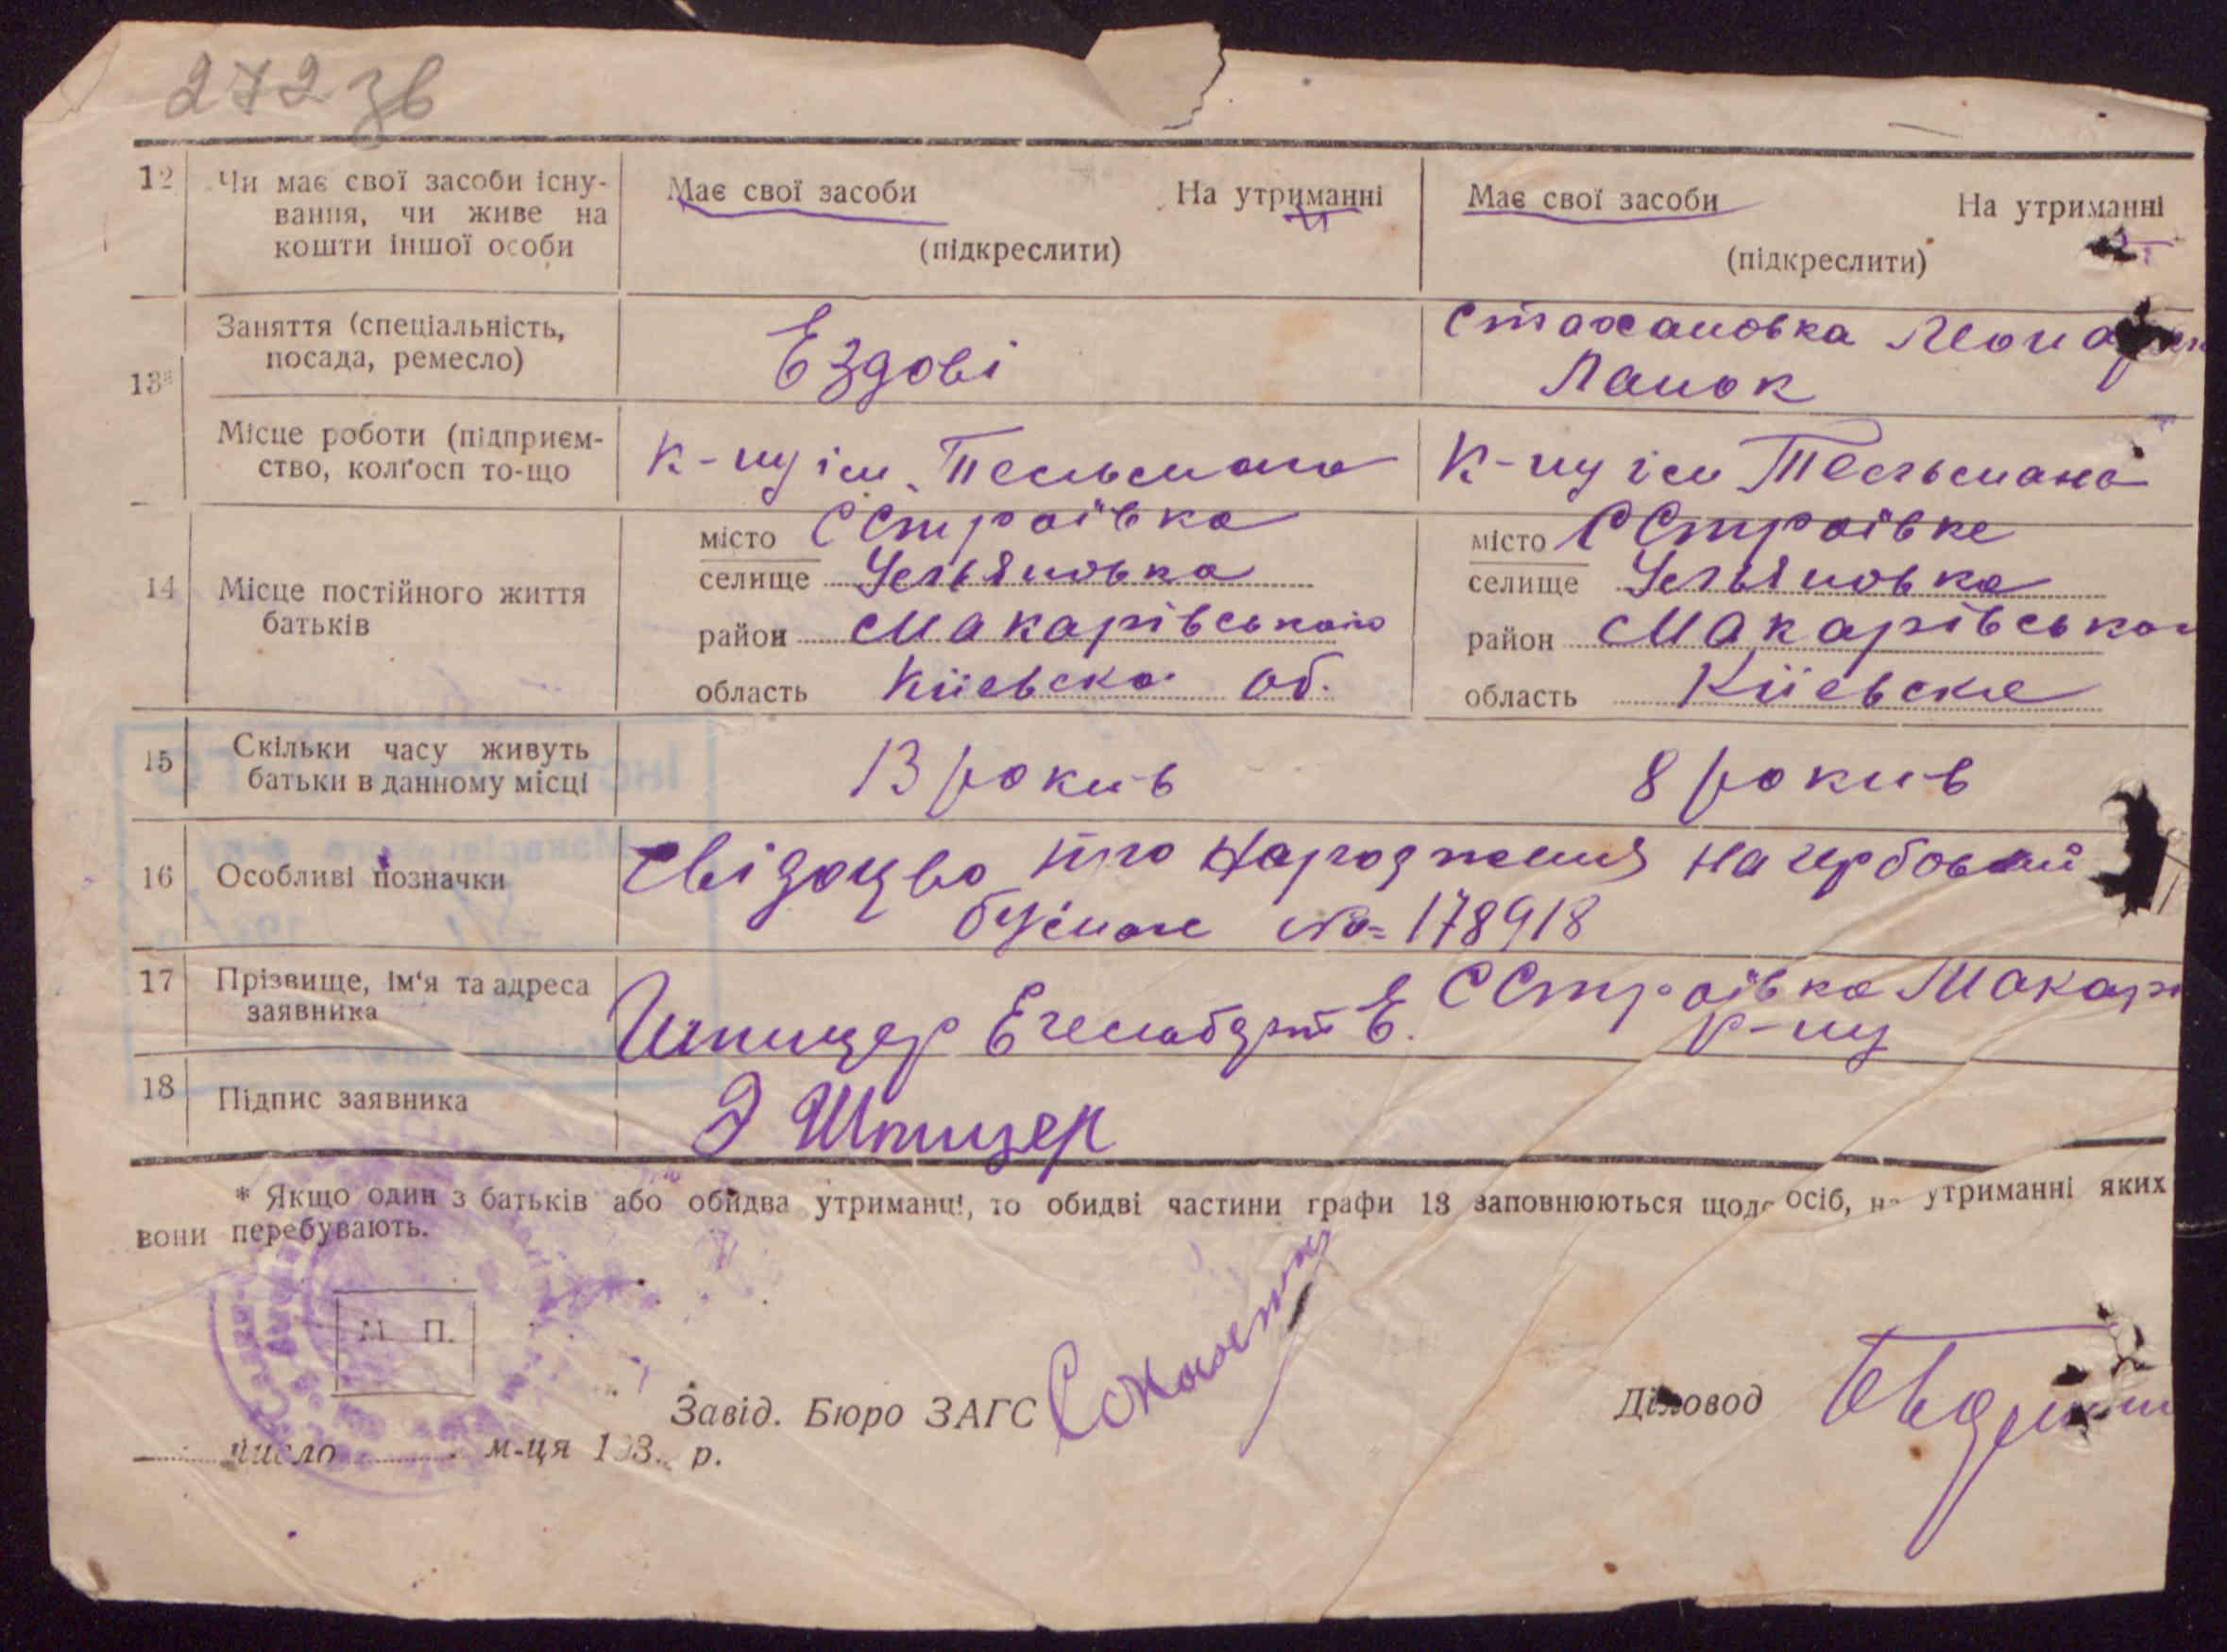 272 зв
12 Чи має свої засоби існу- Має свої засоби На утриманні Має свої засоби На утриманні
вання, чи живе на
кошти іншої особи (підкреслити) (підкреслити)
Заняття (спеціальність, Ездові Стахановка
посада, ремесло) Ланок
13*
Місце роботи (підприєм- К-пу ім. Тельмана К-пу ім Тельмана
ство, колґосп то-що
місто С Строївка місто С Строївке
селище Ульяновка селище Ульяновка
14 Місце постійного життя
батьків
район Макарівського район Макарівсько
область Киевска об. область Киевске
15 Скільки часу живуть 13 рокив 8 рокив
батьки в данному місці
16 Особливі позначки Свідоцво про народження на гербовий
бумазе №= 178918
17 Прізвище, ім'я та адреса Шпицер Е. С Строївка Макар
заявника р-ну
18 Підпис заявника Э Шпицер
* Якщо один з батьків або обидва утриманці, то обидві частини графи 13 заповнюються щодо осіб, на утриманні яких
вони перебувають.
М. П.
Завід. Бюро ЗАГС Діловод
число м-ця 193 р.